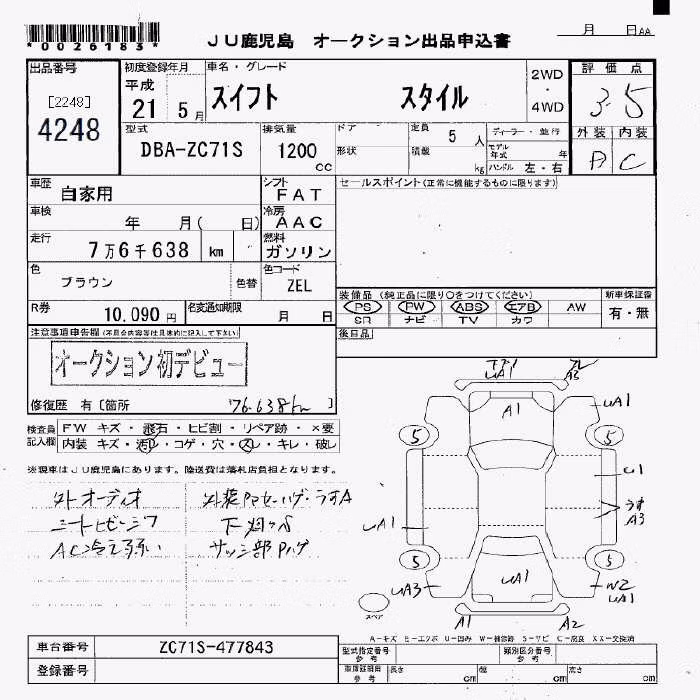 *0026183*
JU鹿児島 オークション出品申込書
月 日AA
出品番号
[2248]
4248
初度登録年月
平成
21 5月
車名・グレード
スイフト スタイル
2WD
・
4WD
評価点
3.5
外装 内装
B C
型式
DBA-ZC71S
排気量
1200
cc
ドア
形状
定員 5 人
積載 kg
ディーラー・並行
モデル年式 年
ハンドル 左・右
車歴
自家用
シフト
FAT
セールスポイント(正常に機能するものに限ります)
車検
年 月( 日)
冷房
AAC
走行
7万6千638 km
燃料
ガソリン
色
ブラウン
色替
色コード
ZEL
R券
10,090 円
名変通知期限
月 日
装備品 (純正品に限り○をつけてください)
PS PW ABS エアB AW
SR ナビ TV カワ
新車保証書
有・無
後日品
注意事項申告欄(不具合内容等は具体的に記入して下さい)
オークション初デビュー
修復歴 有〔箇所 76.638km 〕
検査員
記入欄
FW キズ・飛石・ヒビ割・リペア跡・×要
内装 キズ・汚れ・コゲ・穴・スレ・キレ・破レ
※現車はJU鹿児島にあります。陸送費は落札店負担となります。
外オーディオ
AC冷え弱い
A1
A3
UA1
UA1
5
5
U1
うす
A3
UA1
5
5
UA3
UA1
W2
UA1
スペア
A1
A2
A-キズ E-エクボ U-凹み W-補修跡 S-サビ C-腐食 XX-交換済
車台番号
ZC71S-477843
登録番号
型式指定番号
参考
類別区分番号
参考
車庫証明用
参考
長さ cm
幅 cm
高さ cm